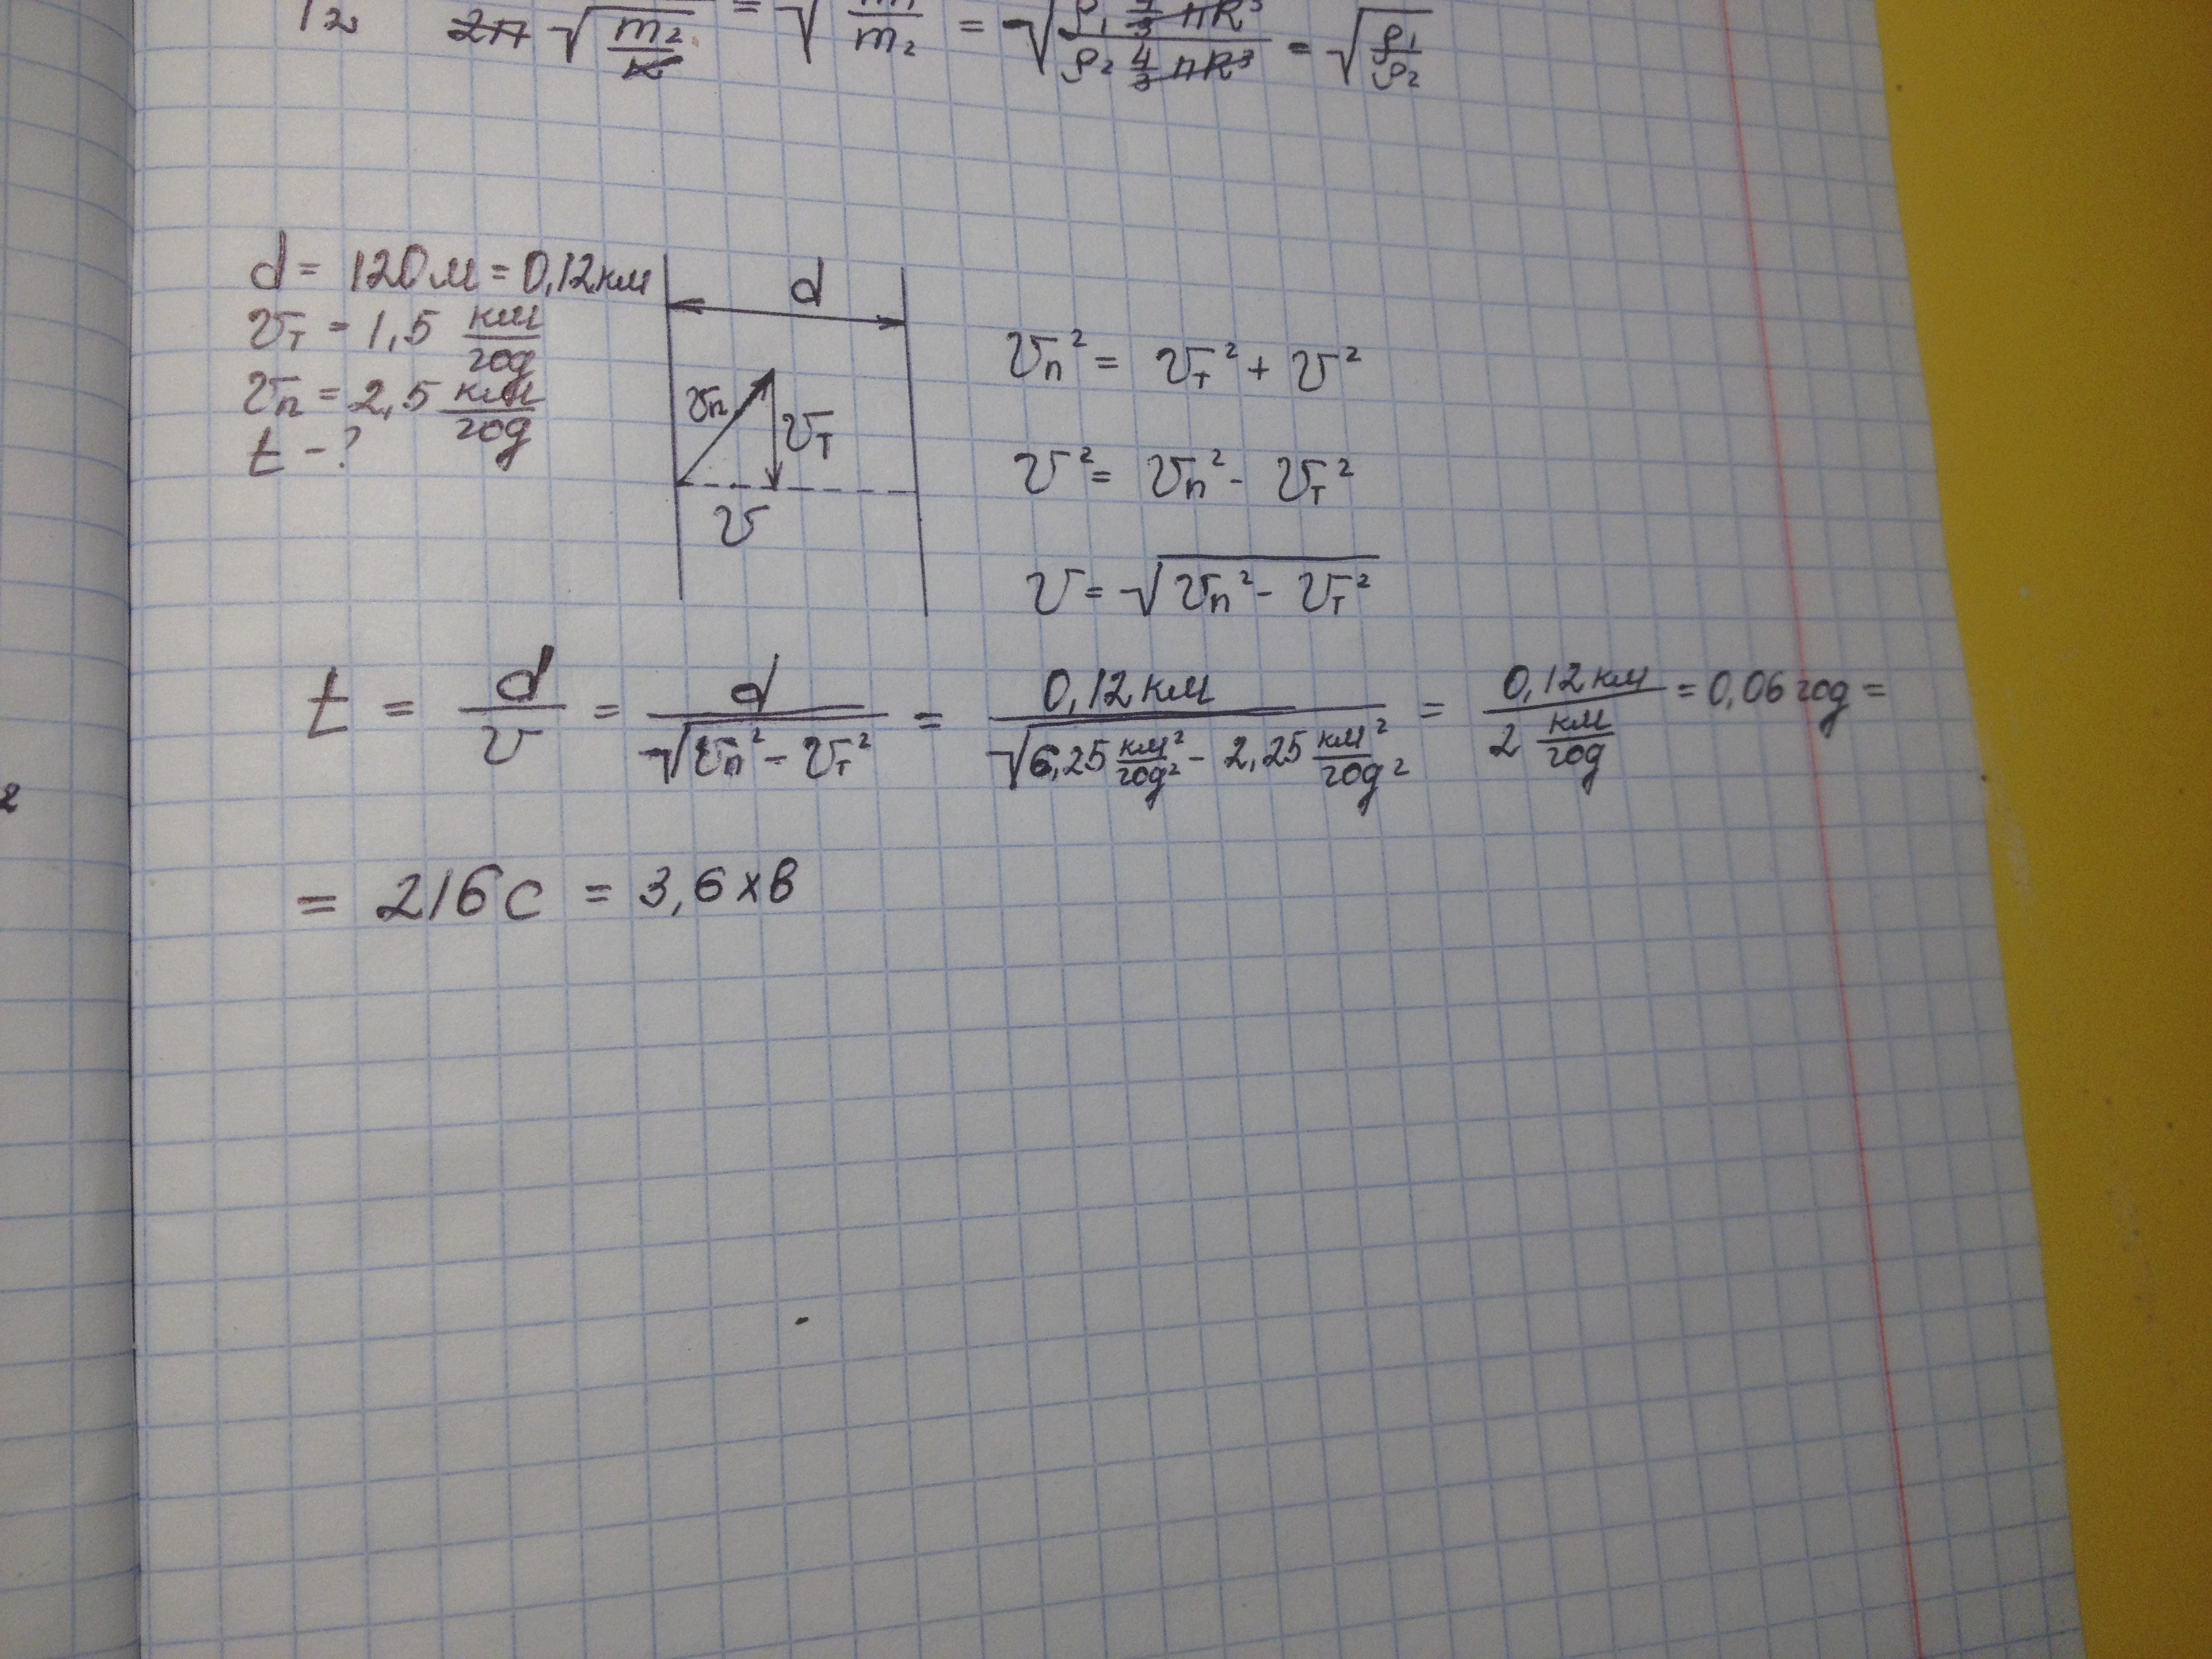 T₂ 2π √(m₂/k) = √(m₁/m₂) = √(ρ₁ 4/3 πR³ / ρ₂ 4/3 πR³) = √(ρ₁/ρ₂)
d = 120 м = 0,12 км
d
𝑣т = 1,5 км/год
𝑣п = 2,5 км/год
t - ?
𝑣п
𝑣т
𝑣
𝑣п² = 𝑣т² + 𝑣²
𝑣² = 𝑣п² - 𝑣т²
𝑣 = √(𝑣п² - 𝑣т²)
t = d/𝑣 = d/√(𝑣п² - 𝑣т²) = 0,12 км/√(6,25 км²/год² - 2,25 км²/год²) = 0,12 км/2 км/год = 0,06 год =
= 216 с = 3,6 хв
2